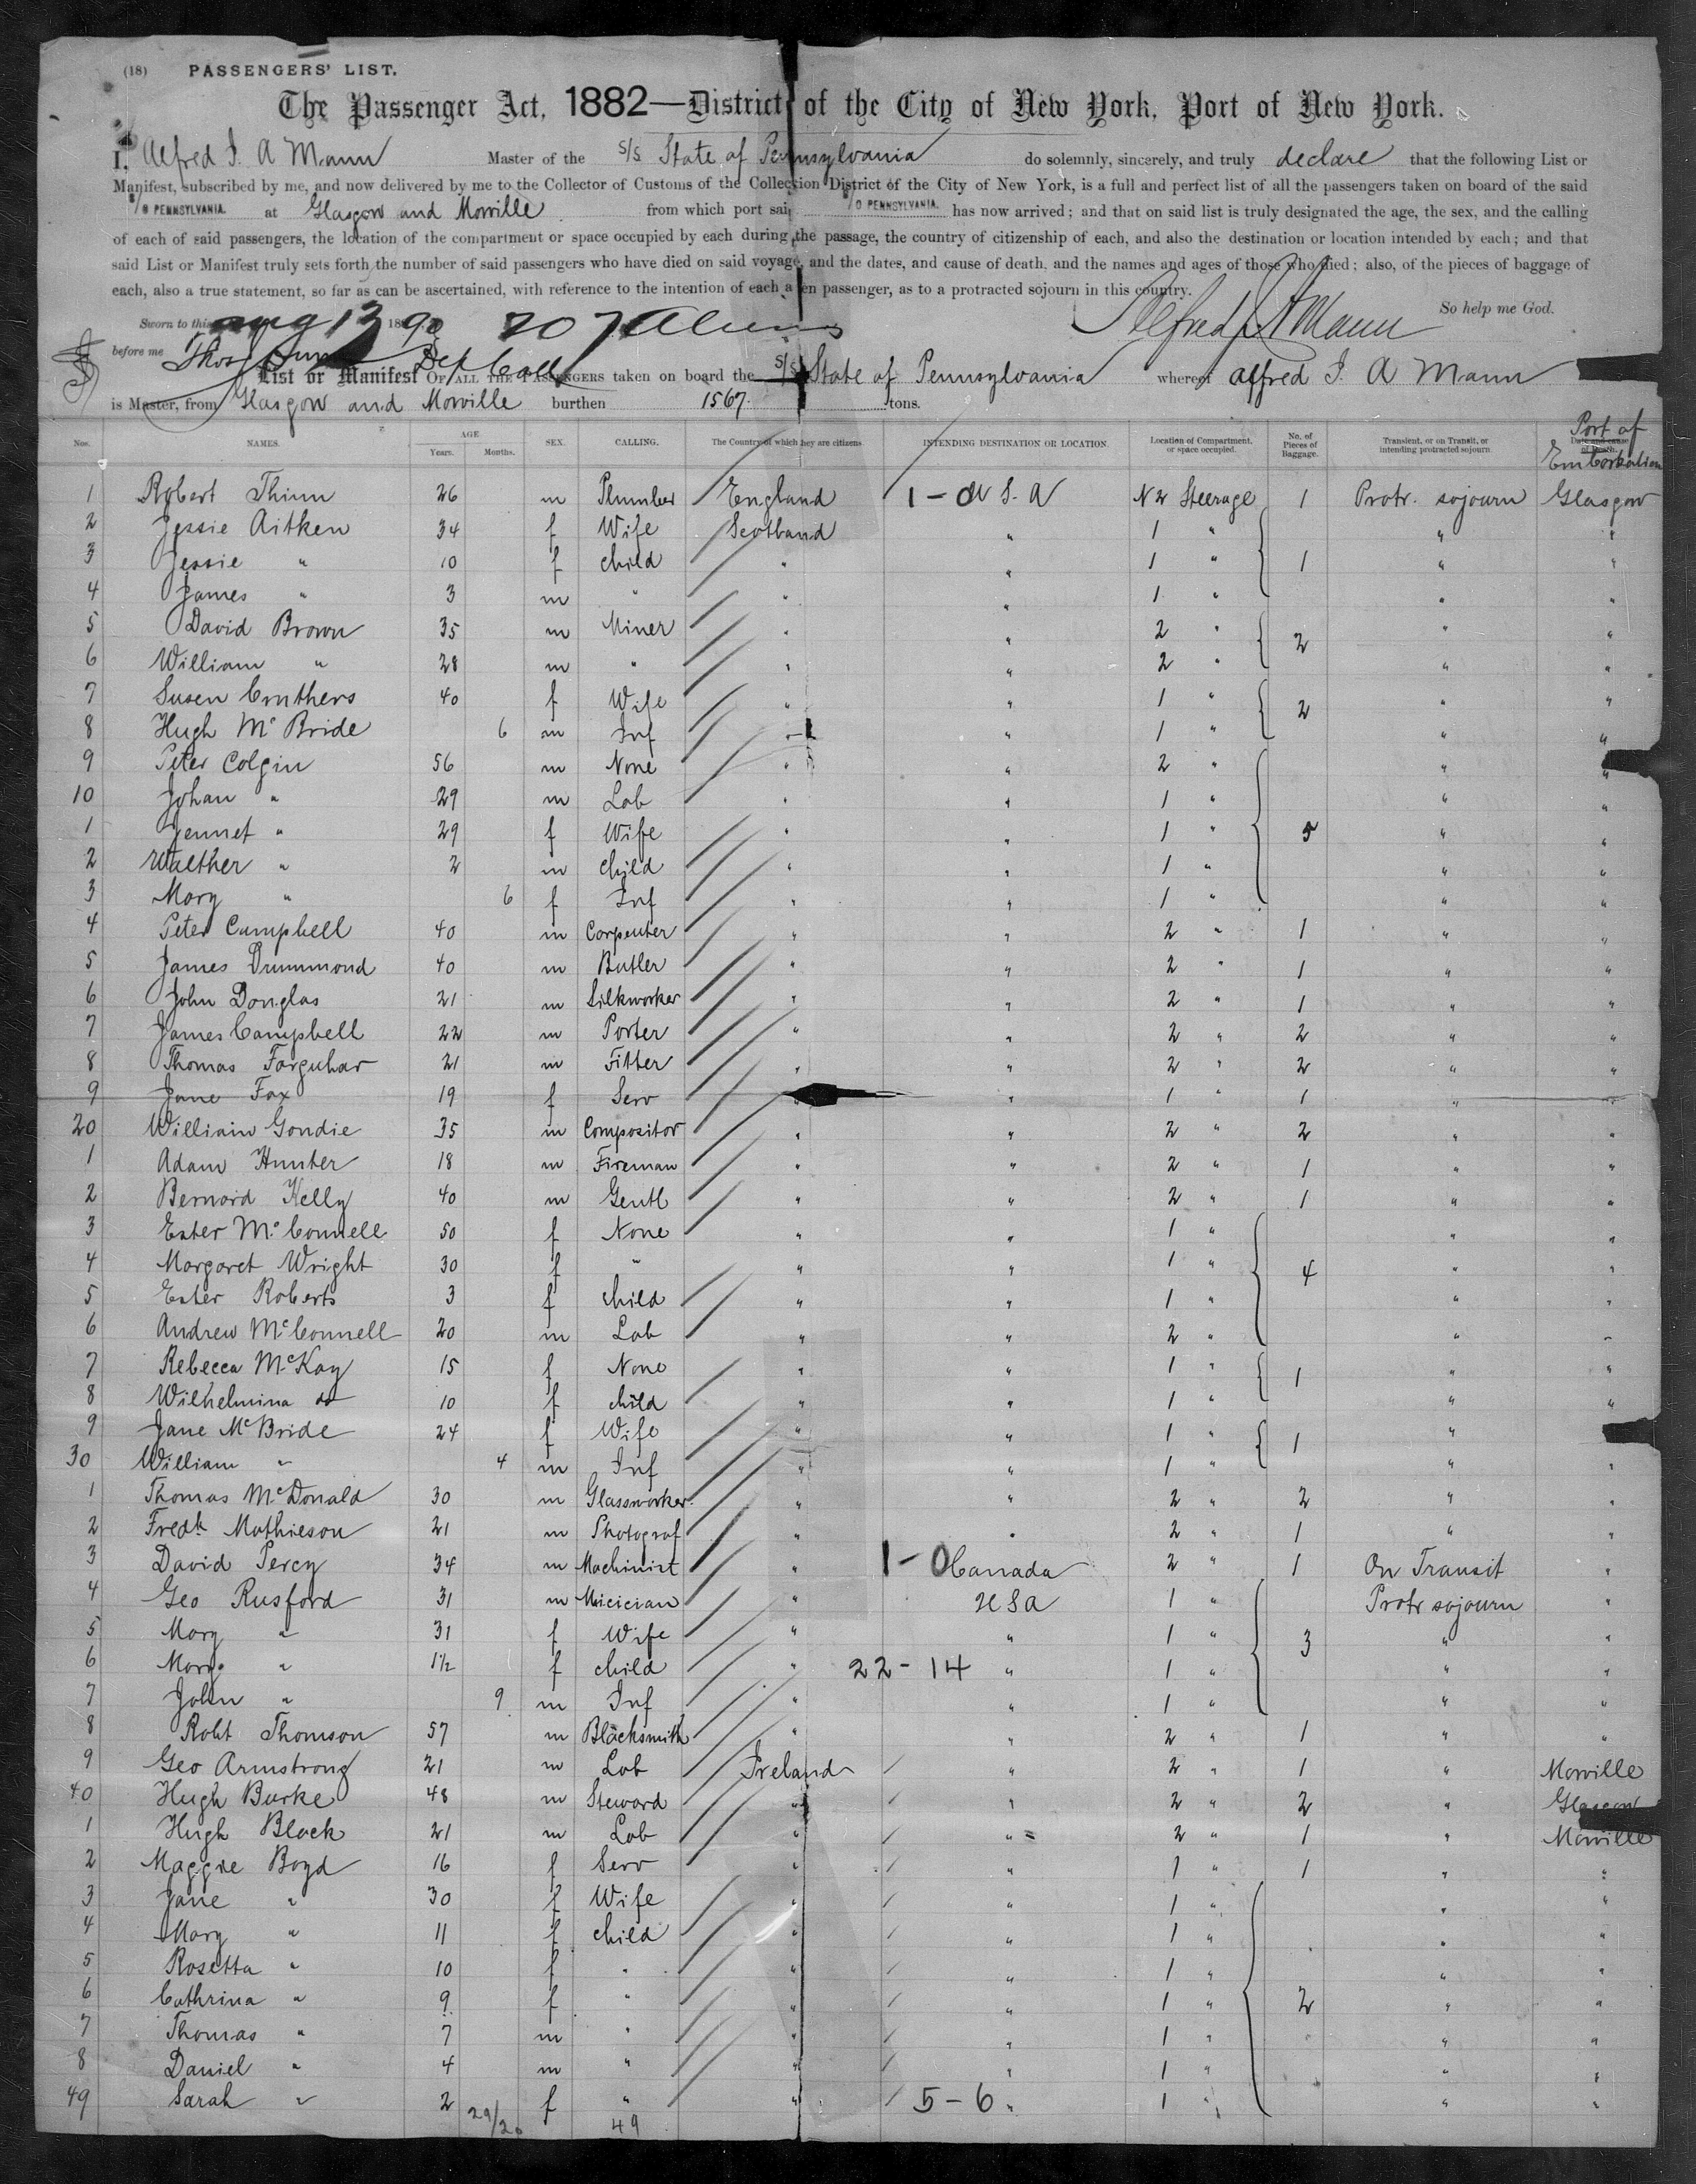 (18) PASSENGERS' LIST.
The Passenger Act, 1882—District of the City of New York, Port of New York.
I, Alfred I. A Mann Master of the S/S State of Pennsylvania do solemnly, sincerely, and truly declare that the following List or
Manifest, subscribed by me, and now delivered by me to the Collector of Customs of the Collection District of the City of New York, is a full and perfect list of all the passengers taken on board of the said
PENNSYLVANIA. at Glasgow and Moville from which port PENNSYLVANIA. has now arrived; and that on said list is truly designated the age, the sex, and the calling
of each of said passengers, the location of the compartment or space occupied by each during the passage, the country of citizenship of each, and also the destination or location intended by each; and that
said List or Manifest truly sets forth the number of said passengers who have died on said voyage, and the dates, and cause of death, and the names and ages of those who died; also, of the pieces of baggage of
each, also a true statement, so far as can be ascertained, with reference to the intention of each en passenger, as to a protracted sojourn in this country.
So help me God.
Sworn to this Aug 13 207 Aliens Alfred I A Mann
before me Thos Dep Coll
List or Manifest OF ALL THE PASSENGERS taken on board the S/S State of Pennsylvania whereof Alfred I. A Mann
is Master, from Glasgow and Moville burthen 1567 tons.
Nos. NAMES. AGE Years. Months. SEX. CALLING. The Country of which they are citizens. INTENDING DESTINATION OR LOCATION. Location of Compartment, or space occupied. No. of Pieces of Baggage. Transient, or on Transit, or intending protracted sojourn. Date and cause of Death. Port of Embarkation
1 Robert Thinn 26 m Plumber England 1-0 U.S.A No 2 Steerage 1 Protr. sojourn Glasgow
2 Jessie Aitken 34 f Wife Scotland " 1 " " "
3 Jessie " 10 f child " " 1 " 1 " "
4 James " 3 m " " " 1 " " "
5 David Brown 35 m Miner " " 2 " 2 " "
6 William " 28 m " " " 2 " " "
7 Susen Cruthers 40 f Wife " " 1 " 2 " "
8 Hugh Mc Bride 6 m Inf " " 1 " " "
9 Peter Colgin 56 m None " " 2 " " "
10 Johan " 29 m Lab " " 1 " " "
1 Jennet " 29 f Wife " " 1 " 5 " "
2 Walther " 2 m child " " 1 " " "
3 Mary " 6 f Inf " " 1 " " "
4 Peter Campbell 40 m Carpenter " " 2 " 1 " "
5 James Drummond 40 m Butler " " 2 " 1 " "
6 John Douglas 21 m Silkworker " " 2 " 1 " "
7 James Campbell 22 m Porter " " 2 " 2 " "
8 Thomas Farguhar 21 m Fitter " " 2 " 2 " "
9 Jane Fox 19 f Serv " " 1 " 1 " "
20 William Goudie 35 m Compositor " " 2 " 2 " "
1 Adam Hunter 18 m Fireman " " 2 " 1 " "
2 Bernard Kelly 40 m Gentl " " 2 " 1 " "
3 Ester Mc Connell 50 f None " " 1 " " "
4 Margaret Wright 30 f " " " 1 " 4 " "
5 Ester Roberts 3 f child " " 1 " " "
6 Andrew McConnell 20 m Lab " " 2 " " "
7 Rebecca McKay 15 f None " " 1 " 1 " "
8 Wilhelmina do 10 f child " " 1 " " "
9 Jane McBride 24 f Wife " " 1 " 1 "
30 William " 4 m Inf " " 1 " "
1 Thomas McDonald 30 m Glassworker " " 2 " 2 " "
2 Fredk Mathieson 21 m Photograf " " 2 " 1 " "
3 David Percy 34 m Machinist " 1-0 Canada 2 " 1 On Transit "
4 Geo Rusford 31 m Micician " U S A 1 " Protr sojourn "
5 Mary " 31 f Wife " " 1 " 3 " "
6 Mary " 1 1/2 f child " 22-14 " 1 " " "
7 John " 9 m Inf " " 1 " " "
8 Robt Thomson 57 m Blacksmith " " 2 " 1 " "
9 Geo Armstrong 21 m Lab Ireland " 2 " 1 " Moville
40 Hugh Burke 48 m Steward " " 2 " 2 " Glasgow
1 Hugh Black 21 m Lab " " = 2 " 1 " Moville
2 Maggie Boyd 16 f Serv " " 1 " 1 " "
3 Jane " 30 f Wife " " 1 " " "
4 Mary " 11 f child " " 1 " " "
5 Rosetta " 10 f " " " 1 " " "
6 Cathrina " 9 f " " " 1 " 2 " "
7 Thomas " 7 m " " " 1 " " "
8 Daniel " 4 m " " " 1 " " "
49 Sarah " 2 f " " 5-6 " 1 " " "
29/20 49